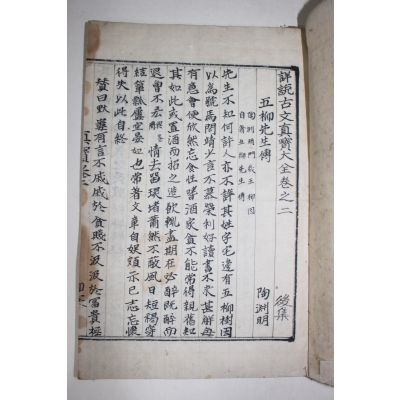 詳説古文真寶大全卷之二
後集
五柳先生傳
陶淵明
陶淵明門栽五柳因
自著五柳先生傳
先生不知何許人亦不詳其姓字宅邊有五柳樹因
以爲號焉閑靖少言不慕榮利好讀書不求甚解每
有意會便欣然忘食性嗜酒家貧不能常得親舊知
其如此或置酒而招之造飮輒盡期在必醉既醉而
退曾不吝情去留環堵蕭然不蔽風日短褐穿
結簞瓢屢空晏如也常著文章自娛頗示己志忘懷
得失以此自終
贊曰黔婁有言不戚戚於貧賤不汲汲於富貴極
眞寶卷二